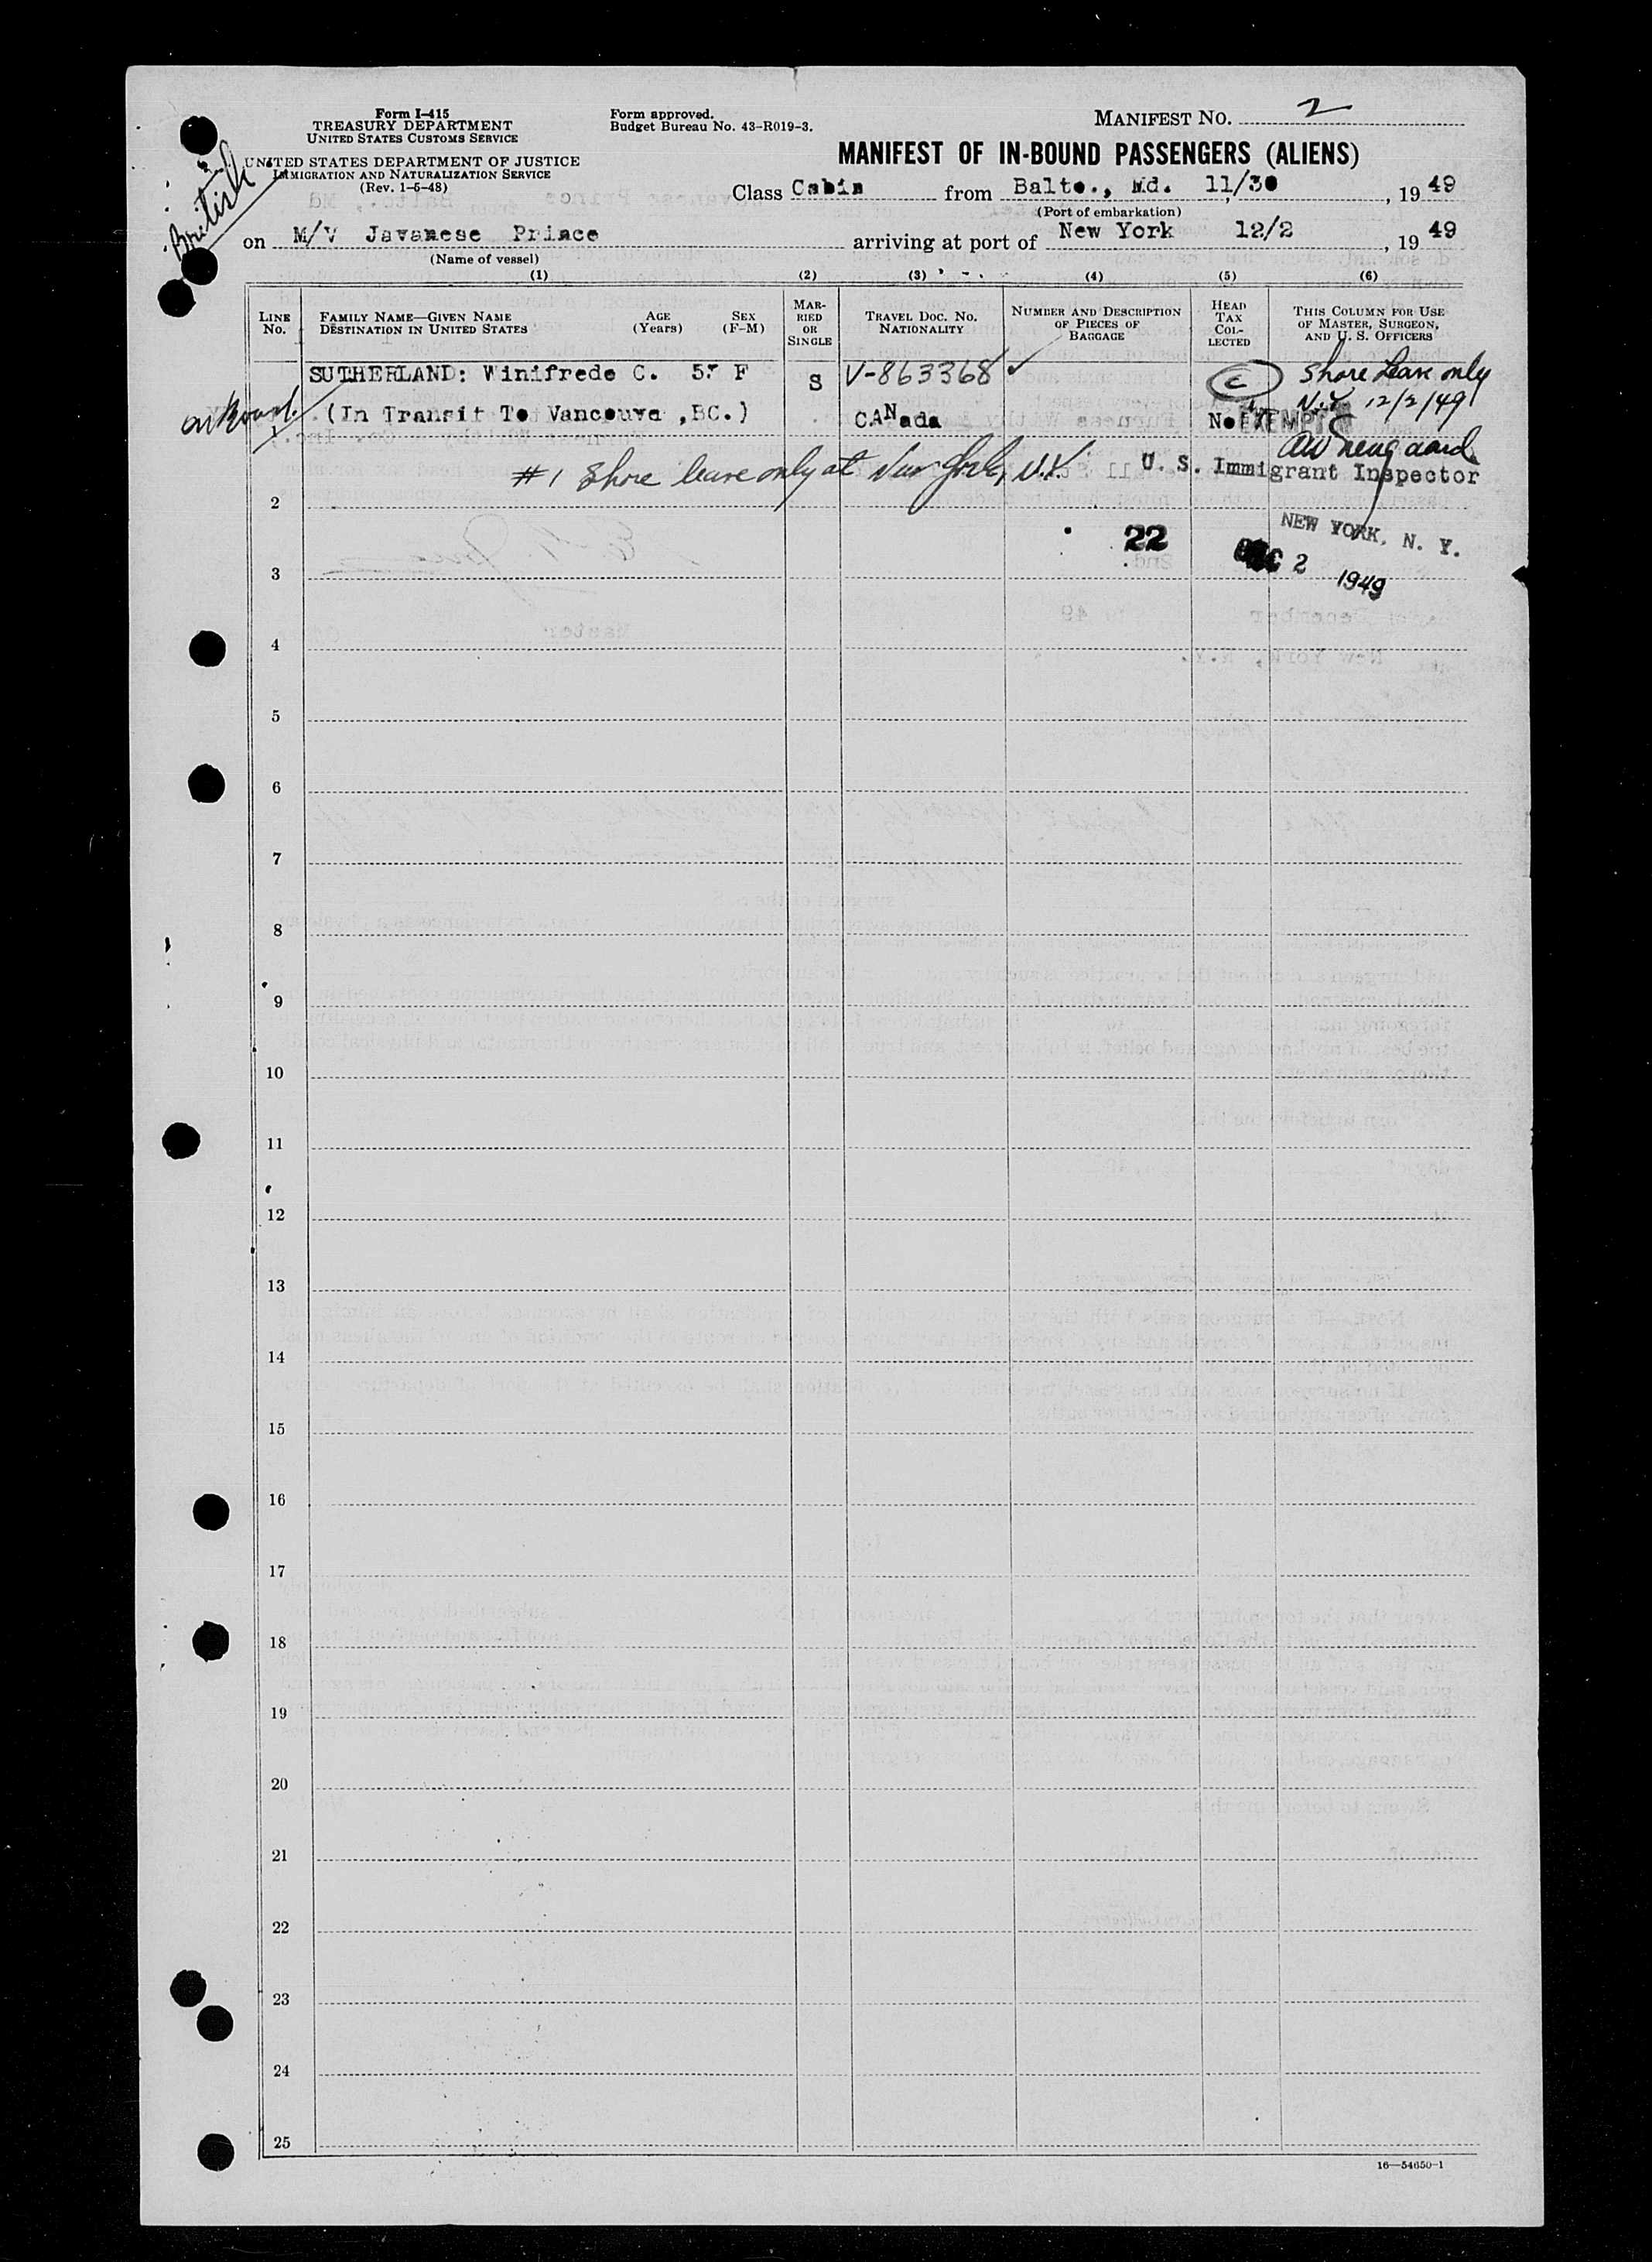 Form I-415
TREASURY DEPARTMENT
UNITED STATES CUSTOMS SERVICE
UNITED STATES DEPARTMENT OF JUSTICE
IMMIGRATION AND NATURALIZATION SERVICE
(Rev. 1-6-48)
Form approved.
Budget Bureau No. 43-R019-3.
MANIFEST NO. 2
MANIFEST OF IN-BOUND PASSENGERS (ALIENS)
British
Class Cabin from Balto., Md. 11/30, 1949
(Port of embarkation)
on M/V Javanese Prince arriving at port of New York 12/2, 1949
(Name of vessel)
(1) (2) (3) (4) (5) (6)
LINE NO.
FAMILY NAME—GIVEN NAME
DESTINATION IN UNITED STATES
AGE (Years)
SEX (F-M)
MARRIED OR SINGLE
TRAVEL DOC. NO.
NATIONALITY
NUMBER AND DESCRIPTION OF PIECES OF BAGGAGE
HEAD TAX COLLECTED
THIS COLUMN FOR USE OF MASTER, SURGEON, AND U. S. OFFICERS
SUTHERLAND: Winifrede C. F S V-863368 ✓ C Shore Leave only
on board. (In Transit To Vancouve ,BC.) CANada EXEMPT N.Y. 12/2/49
1
#1 Shore leave only at New York, N.Y. U. S. Immigrant Inspector
2
22 NEW YORK, N. Y.
3 DEC 2 1949
4
5
6
7
8
9
10
11
12
13
14
15
16
17
18
19
20
21
22
23
24
25
16—54650-1